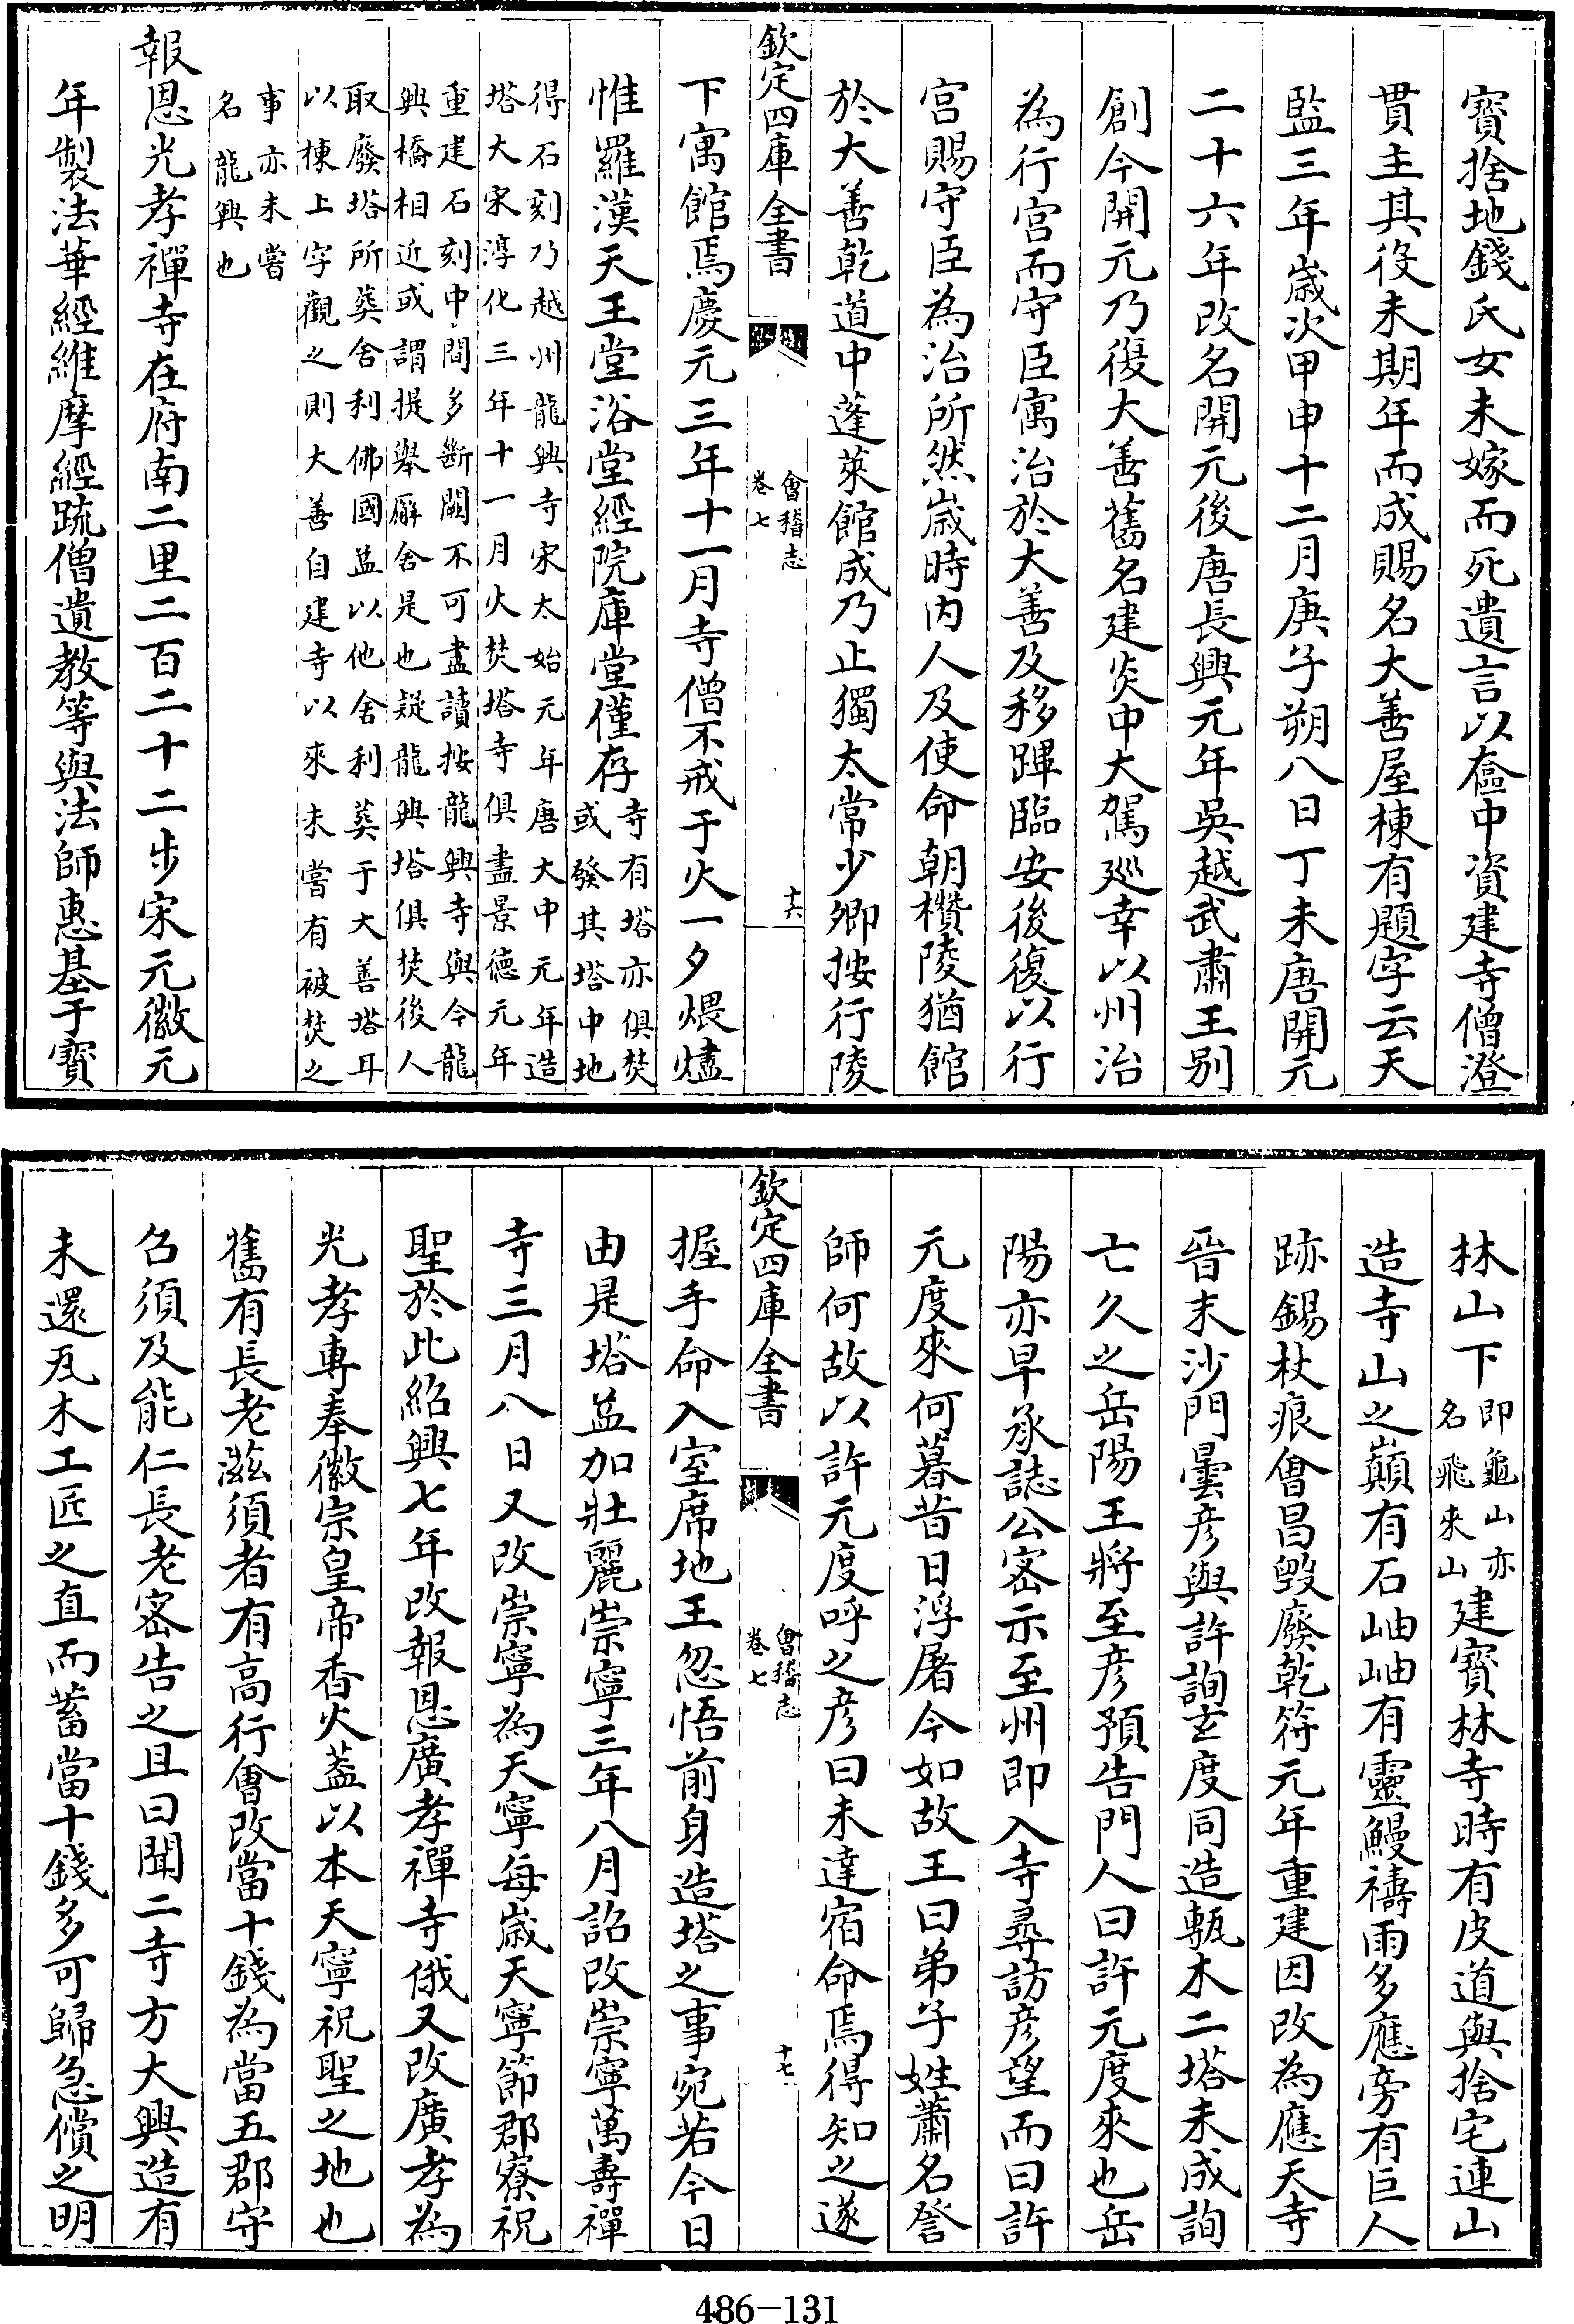 寳捨地錢氏女未嫁而死遺言以奩中資建寺僧澄
貫主其役未期年而成賜名大善屋棟有題字云天
監三年歲次甲申十二月庚子朔八日丁未唐開元
二十六年改名開元後唐長興元年吳越武肅王別
創今開元乃復大善舊名建炎中大駕廵幸以州治
為行宫而守臣寓治於大善及移蹕臨安後復以行
宫賜守臣為治所然歲時内人及使命朝欑陵猶館
於大善乾道中蓬萊館成乃止獨太常少卿按行陵
欽定四庫全書
會稽志
卷七
十六
下寓館焉慶元三年十一月寺僧不戒于火一夕煨燼
惟羅漢天王堂浴堂經院庫堂僅存
寺有塔亦俱焚
或發其塔中地
得石刻乃越州龍興寺宋太始元年唐大中元年造
塔大宋淳化三年十一月火焚塔寺俱盡景德元年
重建石刻中間多斷闕不可盡讀按龍興寺與今龍
興橋相近或謂提舉廨舍是也疑龍興塔俱焚後人
取廢塔所葬舍利佛國益以他舍利葬于大善塔耳
以棟上字觀之則大善自建寺以來未嘗有被焚之
事亦未嘗
名龍興也
報恩光孝禪寺在府南二里二百二十二步宋元徽元
年製法華經維摩經疏僧遺教等與法師惠基于寳
林山下
即龜山亦
名飛來山
建寳林寺時有皮道與捨宅連山
造寺山之巔有石岫岫有靈鰻禱雨多應旁有巨人
跡錫杖痕會昌毁廢乾符元年重建因改為應天寺
晉末沙門曇彦與許詢𤣥度同造甎木二塔未成詢
亡久之岳陽王將至彦預告門人曰許元度來也岳
陽亦早承誌公宻示至州即入寺尋訪彦望而曰許
元度來何暮昔日浮屠今如故王曰弟子姓蕭名詧
師何故以許元度呼之彦曰未達宿命焉得知之遂
欽定四庫全書
會稽志
卷七
十七
握手命入室席地王忽悟前身造塔之事宛若今日
由是塔益加壯麗崇寧三年八月詔改崇寧萬壽禪
寺三月八日又改崇寧為天寧每歲天寧節郡寮祝
聖於此紹興七年改報恩廣孝禪寺俄又改廣孝為
光孝專奉徽宗皇帝香火葢以本天寧祝聖之地也
舊有長老滋須者有高行會改當十錢為當五郡守
召須及能仁長老宻告之且曰聞二寺方大興造有
未還瓦木工匠之直而蓄當十錢多可歸急償之明
486-131